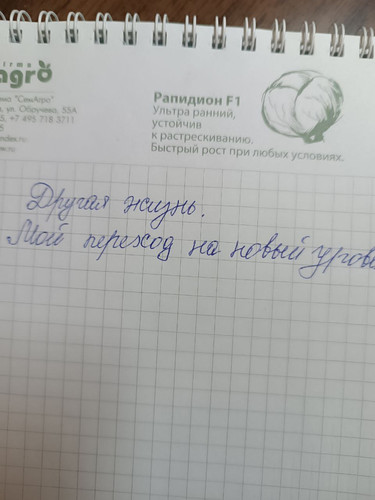 firma
agro
"СемАгро"
ул. Обручева, 55А
+7 495 718 3711
Рапидион F1
Ультра ранний,
устойчив
к растрескиванию.
Быстрый рост при любых условиях.
Другая жизнь.
Мой переход на новый